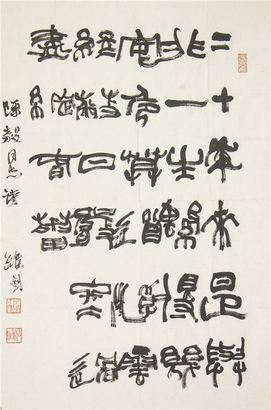 二十年來是與
非一生繫得幾
安危莫道浮雲
終蔽日嚴冬過
盡綻春蕾
陳毅同志詩 維釗